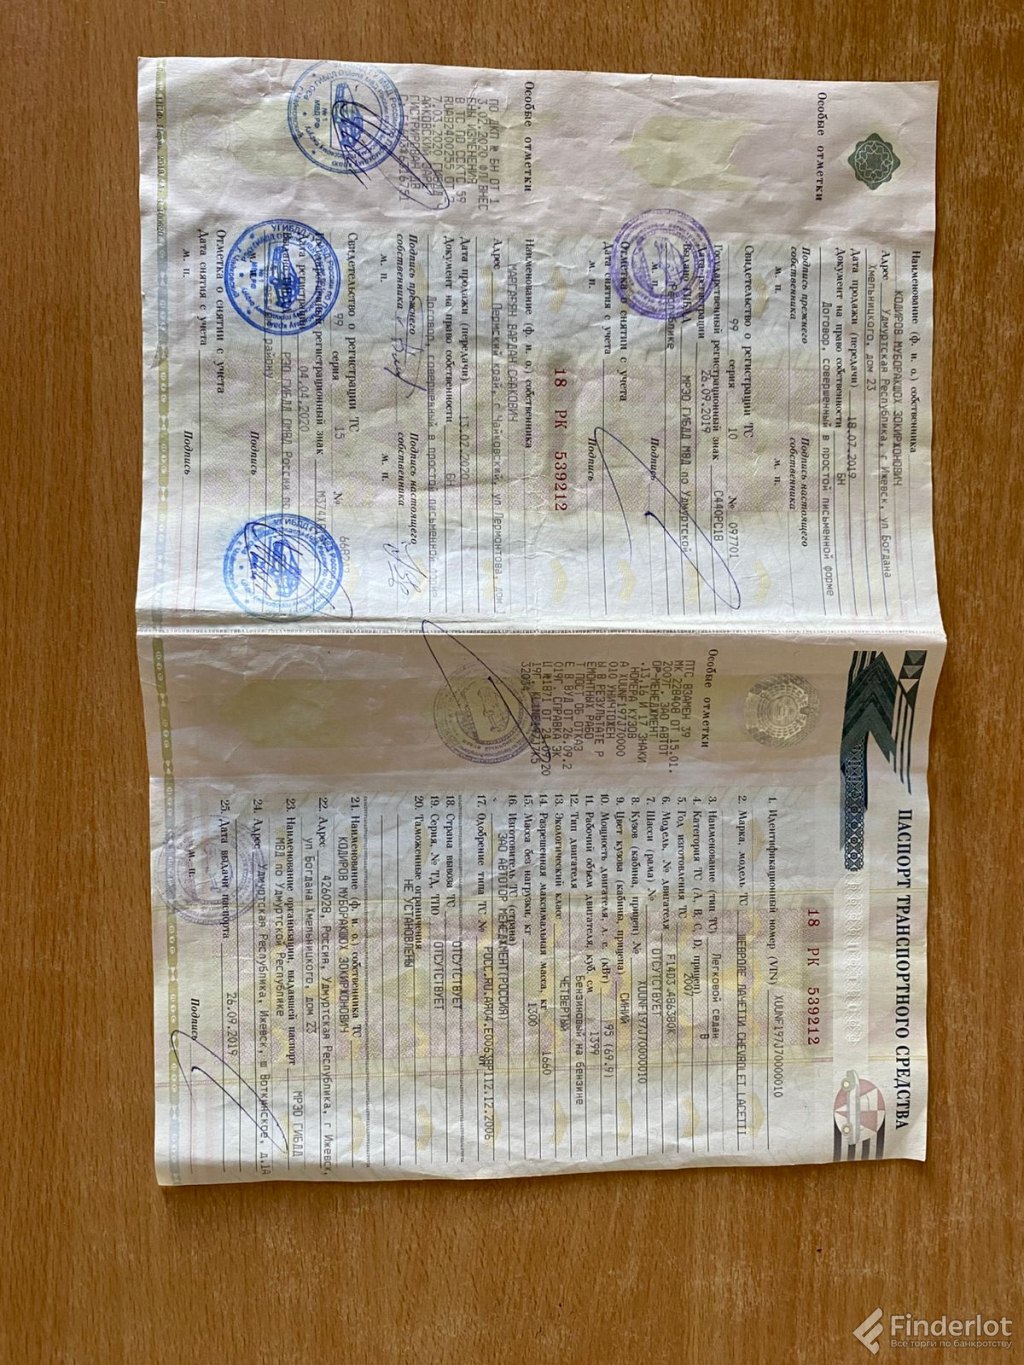 ПАСПОРТ ТРАНСПОРТНОГО СРЕДСТВА
18 РК 539212
1. Идентификационный номер (VIN) XUUNF197J70000010
2. Марка, модель ТС ШЕВРОЛЕ ЛАЧЕТТИ CHEVROLET LACETTI
3. Наименование (тип ТС) Легковой седан
4. Категория ТС (A, B, C, D, прицеп) B
5. Год изготовления ТС 2007
6. Модель, № двигателя F14D3,486380K
7. Шасси (рама) № ОТСУТСТВУЕТ
8. Кузов (кабина, прицеп) № XUUNF197J70000010
9. Цвет кузова (кабины, прицепа) СИНИЙ
10. Мощность двигателя, л. с. (кВт) 95 (69.9)
11. Рабочий объем двигателя, куб. см 1399
12. Тип двигателя Бензиновый на бензине
13. Экологический класс ЧЕТВЕРТЫЙ
14. Разрешенная максимальная масса, кг 1660
15. Масса без нагрузки, кг 1300
16. Изготовитель ТС (страна)
ЗАО АВТОТОР МЕНЕДЖМЕНТ(РОССИЯ)
17. Одобрение типа ТС №
12.12.2006
18. Страна вывоза ТС ОТСУТСТВУЕТ
19. Серия, № ТД, ТПО ОТСУТСТВУЕТ
20. Таможенные ограничения
НЕ УСТАНОВЛЕНЫ
21. Наименование (ф. и. о.) собственника ТС
КОДИРОВ МУБОРАКШОХ ЗОКИРХОНОВИЧ
22. Адрес 426028, Россия, Удмуртская Республика, г Ижевск,
ул Богдана Хмельницкого, дом 23
23. Наименование организации, выдавшей паспорт МРЭО ГИБДД
МВД по Удмуртской Республике
24. Адрес Удмуртская Республика, Ижевск, ш Воткинское, д.1А
25. Дата выдачи паспорта 26.09.2019
М. П. Подпись
Особые отметки
ПТС ВЗАМЕН 39
МК 228408 ОТ 15.01.
2007Г. ЗАО АВТОТ
ОР-МЕНЕДЖМЕНТ
.13,16 И 17 ЗНАКИ
НОМЕРА КУЗОВ
А XUUNF197J70000
010 УНИЧТОЖЕН
Ы В РЕЗУЛЬТАТЕ Р
ЕМОНТНЫХ РАБО
Т ПОСТ. ОБ ОТКАЗ
Е В ВУД ОТ 26.09.2
019Г. СПРАВКА ЭК
Ц №1871 ОТ 24.09.20
19Г.
Особые отметки
Наименование (ф. и. о.) собственника
КОДИРОВ МУБОРАКШОХ ЗОКИРХОНОВИЧ
Адрес Удмуртская Республика, г Ижевск, ул Богдана
Хмельницкого, дом 23
Дата продажи (передачи) 18.07.2019
Документ на право собственности БН
Договор, совершенный в простой письменной форме
Подпись прежнего собственника
Подпись настоящего собственника
М. П.
М. П.
Свидетельство о регистрации ТС
99 серия 10 № 097701
Государственный регистрационный знак С440РС18
Дата регистрации 26.09.2019
Выдано ГИБДД МРЭО ГИБДД МВД по Удмуртской
Республике
М. П. Подпись
Отметка о снятии с учета
Дата снятия с учета
М. П. Подпись
18 РК 539212
Особые отметки
ПО ДКП № БН ОТ 1
3.02.2020 ФЛ ВНЕС
ЕНЫ ИЗМЕНЕНИЯ
В ТС ПО ССТС 59
Наименование (ф. и. о.) собственника
МАРГАРЯН ВАРДАН СААКОВИЧ
Адрес Пермский край, г Чайковский, ул Лермонтова, дом
Дата продажи (передачи) 13.02.2020
Документ на право собственности БН
Договор, совершенный в простой письменной форме
Подпись прежнего собственника
Подпись настоящего собственника
М. П.
М. П.
Свидетельство о регистрации ТС
99 серия 15 №
Государственный регистрационный знак
Дата регистрации 04.04.2020
Выдано ГИБДД РЭО ГИБДД ОМВД России по
району
М. П. Подпись
Отметка о снятии с учета
Дата снятия с учета
М. П. Подпись
Finderlot
Все торги по банкротству